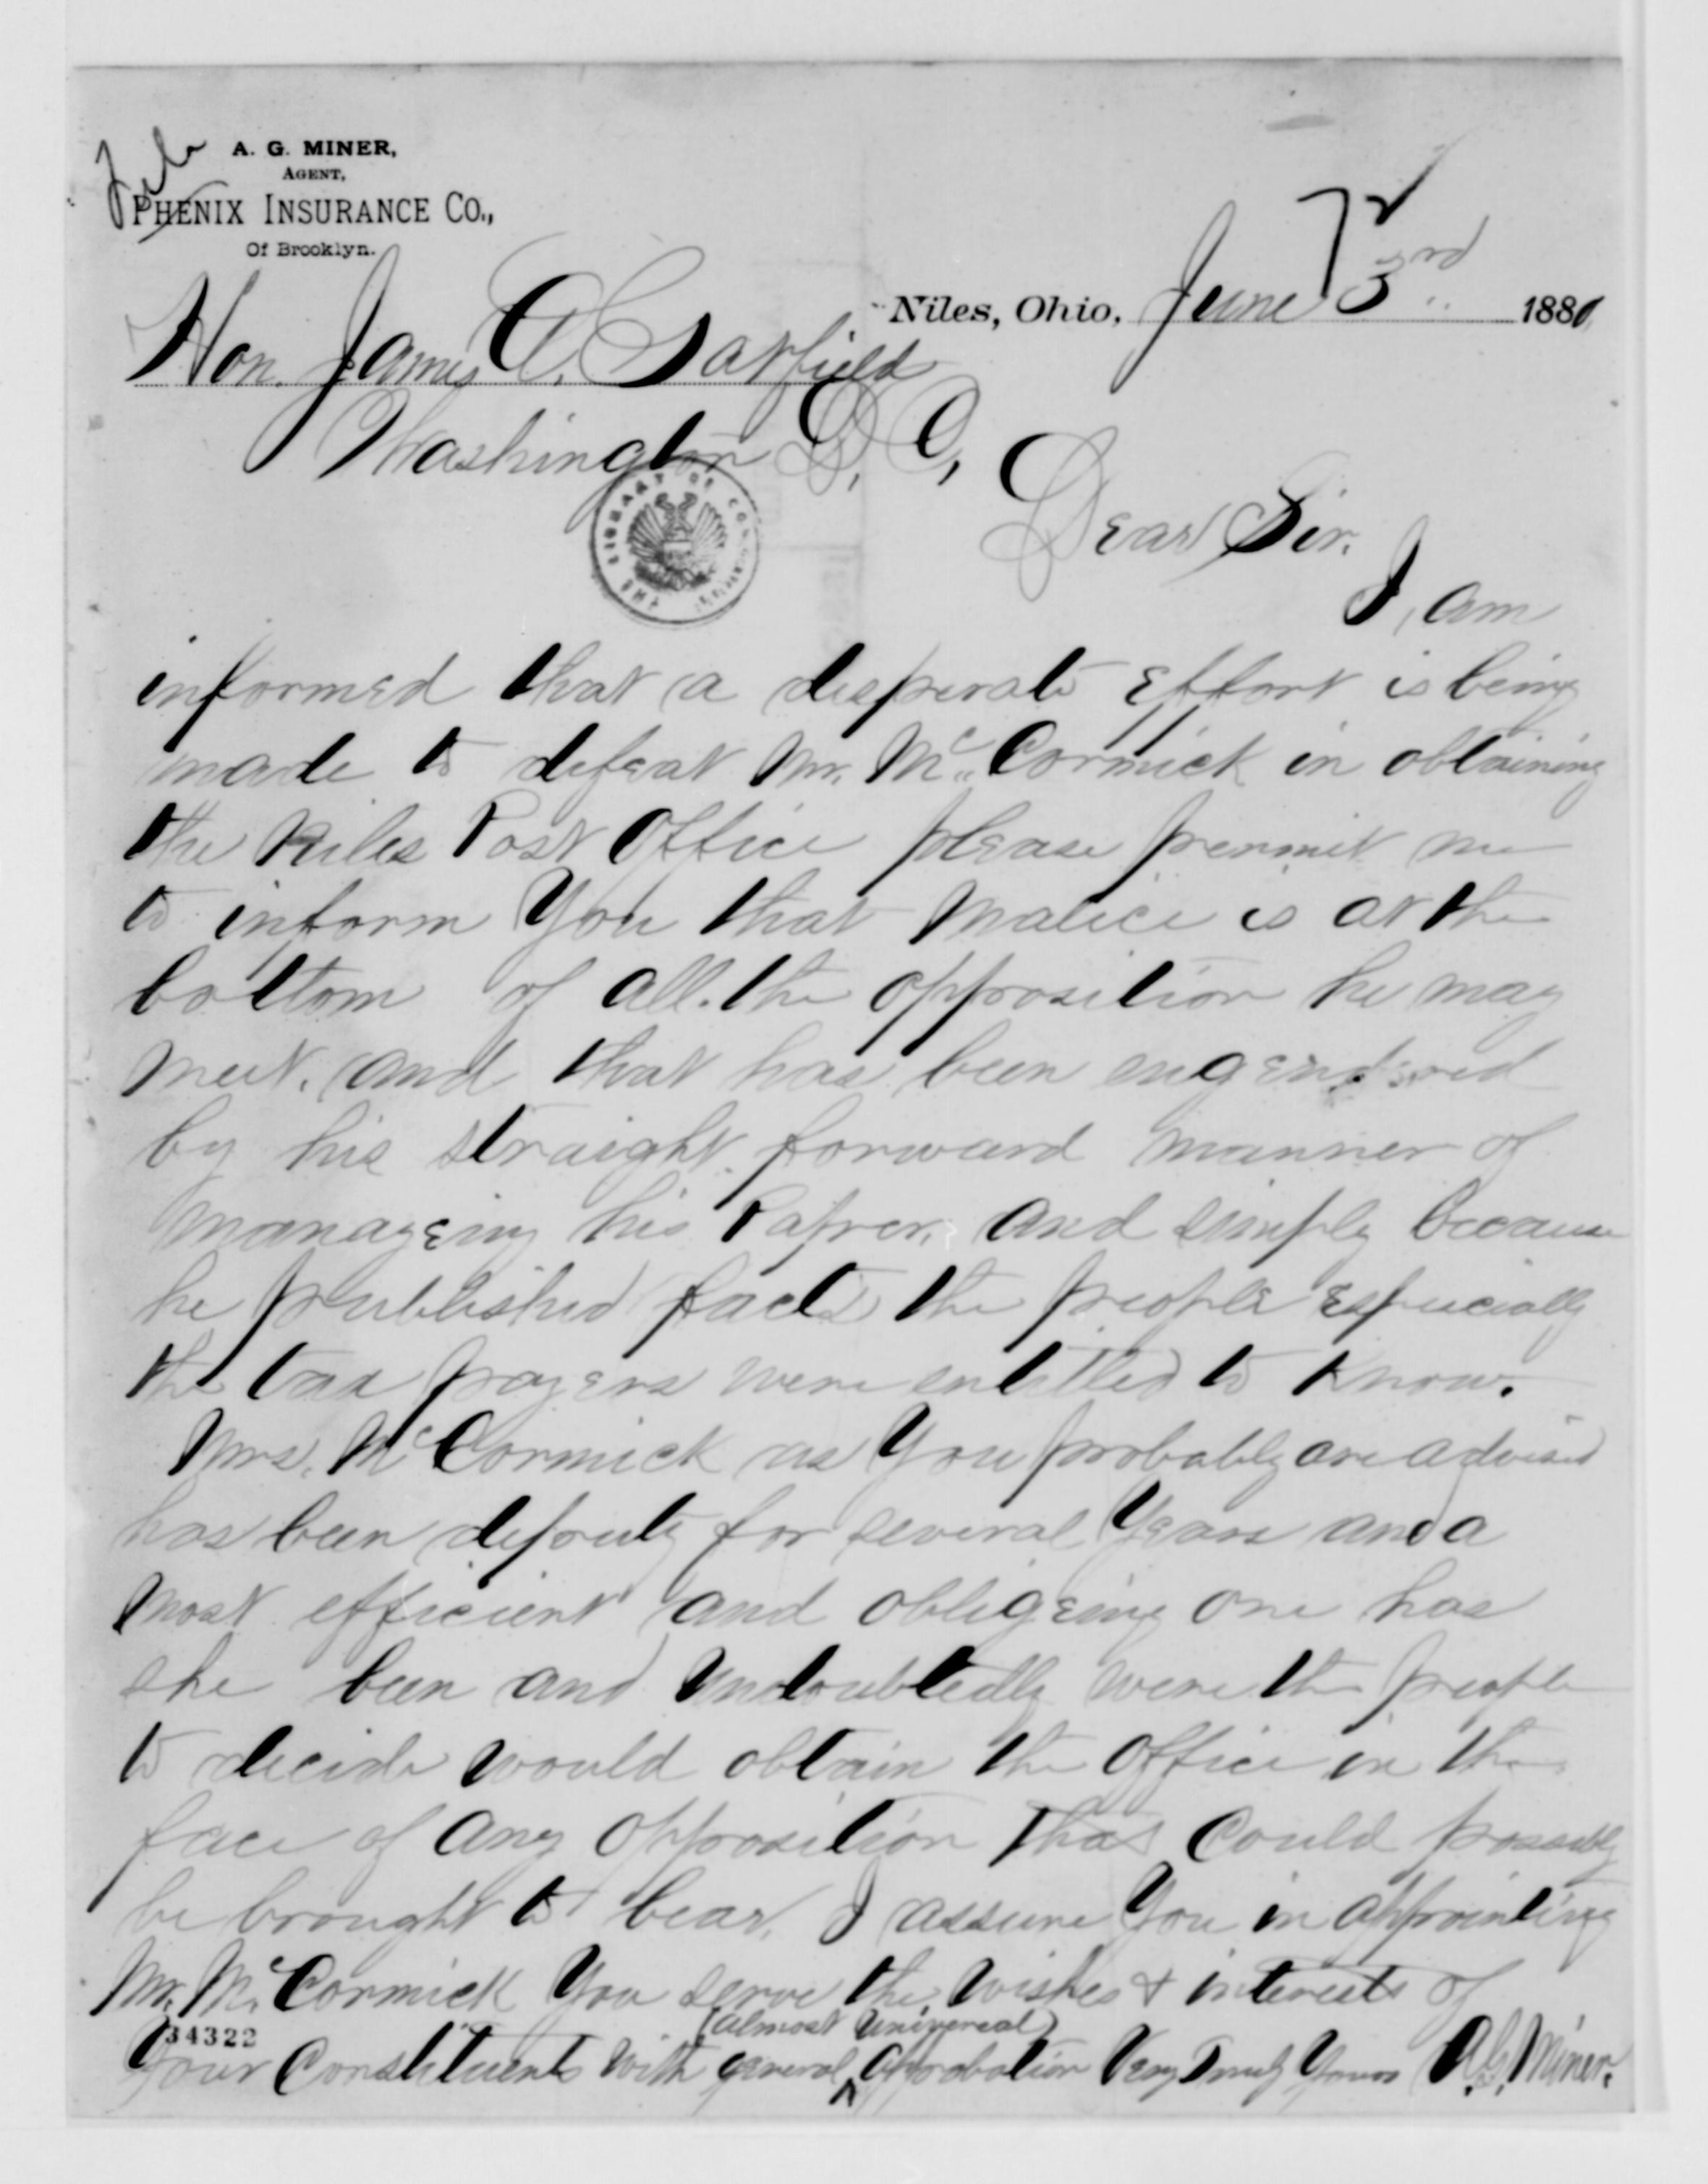 File
A. G. MINER,
AGENT,
PHENIX INSURANCE CO.,
Of Brooklyn.
Niles, Ohio, June 3rd 1880
Hon. James A. Garfield
Washington D. C,
THE LIBRARY OF CONGRESS
Dear Sir.
I am
informed that a desperate Effort is being
made to defeat Mr. Mc Cormick in obtaining
the Niles Post Office please permit me
to inform You that Malice is at the
bottom of all. the opposition he may
meet. and that has been engendered
by his straight forward manner of
manageing his Paper, and simply because
he published facts the people Especially
the tax payers were entitled to know.
Mrs. McCormick as You probably are advised
has been deputy for several Years and a
most efficient and obligeing one has
she been and undoubtedly were the people
to decide would obtain the office in the
face of any opposition that could possibly
be brought to bear, I assure You in appointing
Mr. McCormick You serve the wishes & interests of
34322
(almost universal)
Your Constituents with general ^ approbation Very Truly Yours A. G. Miner.